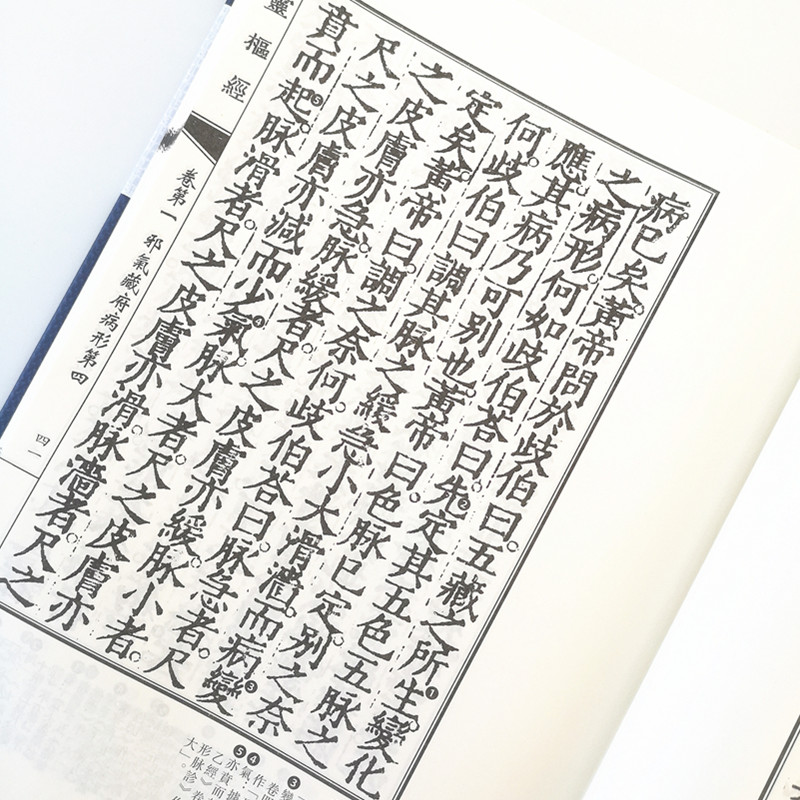 病已矣。黃帝問於歧伯曰。五藏之所生❶變化
之病形。何如歧伯荅曰。先❷定其五色五脉之
應其病乃可別也。黃帝曰。色脉已定。別之奈
何。歧伯曰調其脉之緩急小大滑濇。而病❸變
定矣。黃帝曰。調之奈何。歧伯荅曰。脉急者。尺
之皮膚亦急。脉緩者。尺之皮膚亦緩。脉小者。
尺之皮膚亦減而少❹氣。脉大者。尺之皮膚亦
賁而起❺。脉滑者。尺之皮膚亦滑。脉濇者。尺之
靈樞經
卷第一 邪氣藏府病形第四
四一
❸
❹
❺